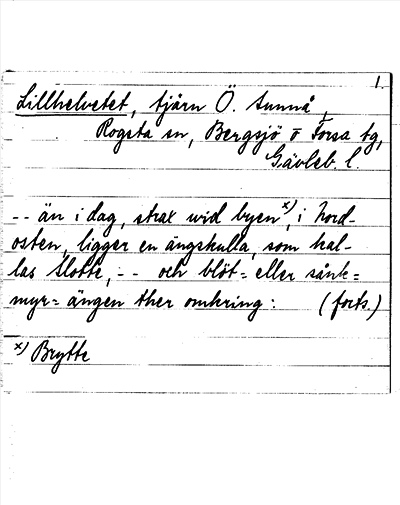 1.
Lillhelvetet, tjärn Ö. Annnå,
Rogsta sn, Bergsjö o Forsa tg,
Gävleb. l.
-- än i dag, strax wid byen x), i Nord-
osten, ligger en ängskulla, som kal-
las Slotte, -- och blöt= eller sånk=
myr= ängen ther omkring: (forts.)
x) Brytte